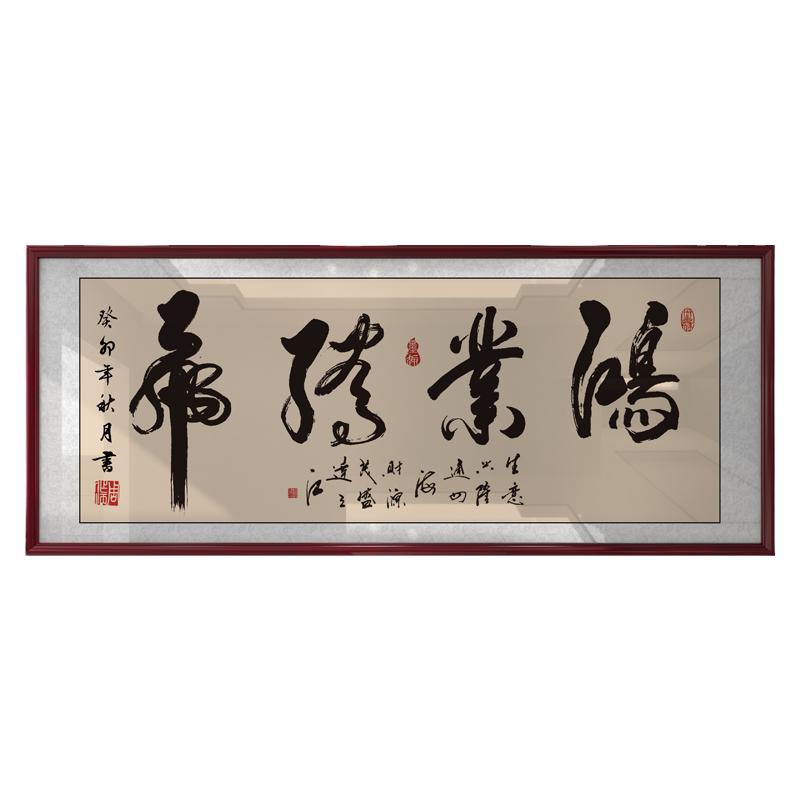 鴻業騰飛
生意
興隆
通四
海
財源
茂盛
達三
江
癸卯年秋月書